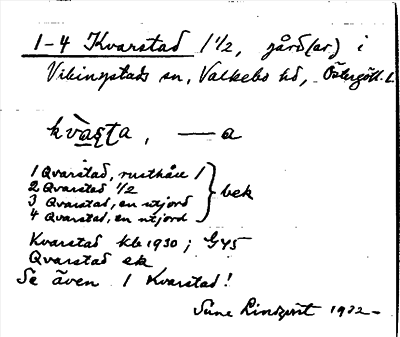 1-4 Kvarstad 1 1/2, gård(ar) i
Vikingstads sn, Valkebo hd, Östergötl. l.
kvasta, — a
1 Qvarstad, rusthåll 1
2 Qvarstad 1/2
3 Qvarstad, en utjord
4 Qvarstad, en utjord
} bek
Kvarstad kb 1930; G45
Qvarstad ek
Se även 1 Kvarstad!
Sune Lindqvist 1922-